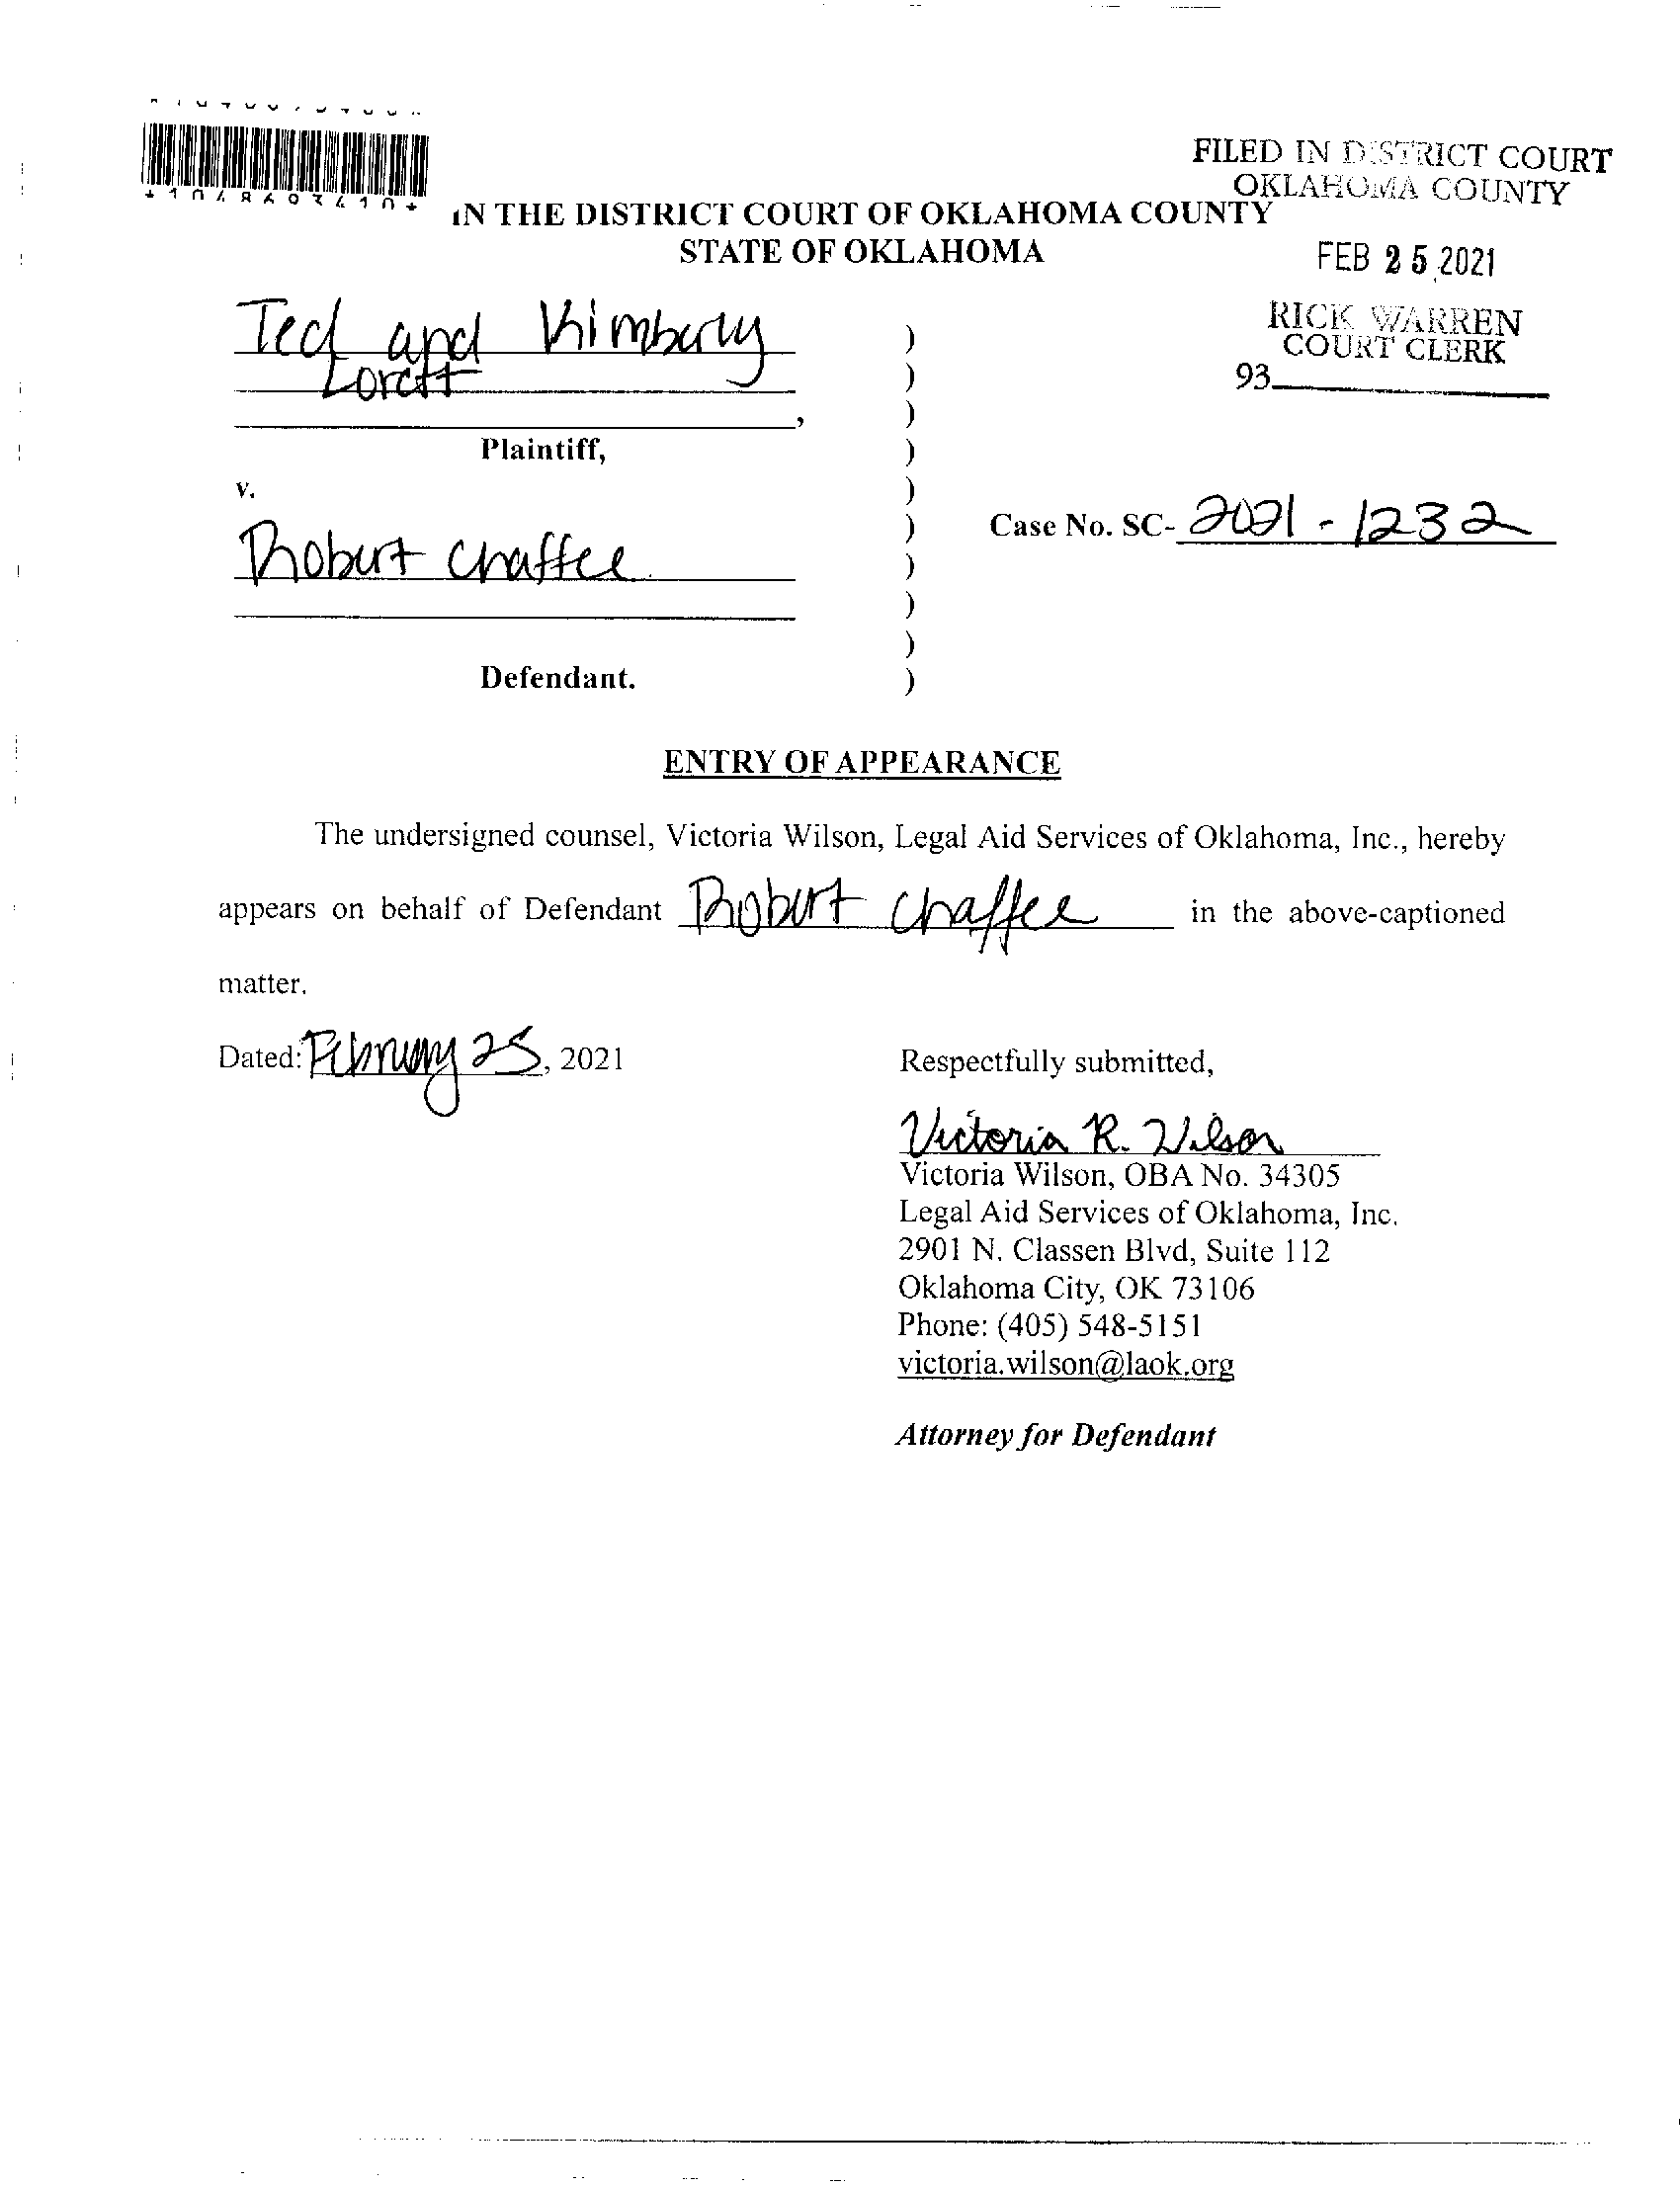 FILED IN DISTRICT COURT
OKLAHOMA COUNTY
IN THE DISTRICT COURT OF OKLAHOMA COUNTY
STATE OF OKLAHOMA
FEB 25 2021
RICK WARREN
COURT CLERK
93
Ted and Kimberly
)
)
)
Plaintiff,
)
v.
)
Case No. SC- 2021 - 1232
)
Robert Chaffee
)
)
)
Defendant.
)
ENTRY OF APPEARANCE
The undersigned counsel, Victoria Wilson, Legal Aid Services of Oklahoma, Inc., hereby
appears on behalf of Defendant Robert Chaffee in the above-captioned
matter.
Dated: February 25, 2021
Respectfully submitted,
Victoria R. Wilson
Victoria Wilson, OBA No. 34305
Legal Aid Services of Oklahoma, Inc.
2901 N. Classen Blvd, Suite 112
Oklahoma City, OK 73106
Phone: (405) 548-5151
victoria.wilson@laok.org
Attorney for Defendant